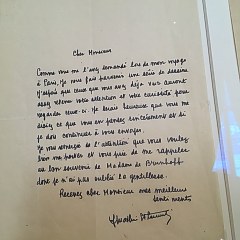 Cher Monsieur
Comme vous me l'avez demandé lors de mon voyage
à Paris, je vous fais parvenir une série de dessins
J'espère que ceux que vous avez déjà vus auront
assez retenu votre attention et votre curiosité pour
regarder ceux-ci. Je serais heureux que vous me
disiez ce que vous en pensez sincèrement et si
je dois continuer à vous envoyer.
Je vous remercie de l'attention que vous voulez
bien me porter et vous prie de me rappeler
au bon souvenir de Madame de Brunhoff
dont je n'ai pas oublié la gentillesse.
Recevez cher Monsieur mes meilleurs
sentiments